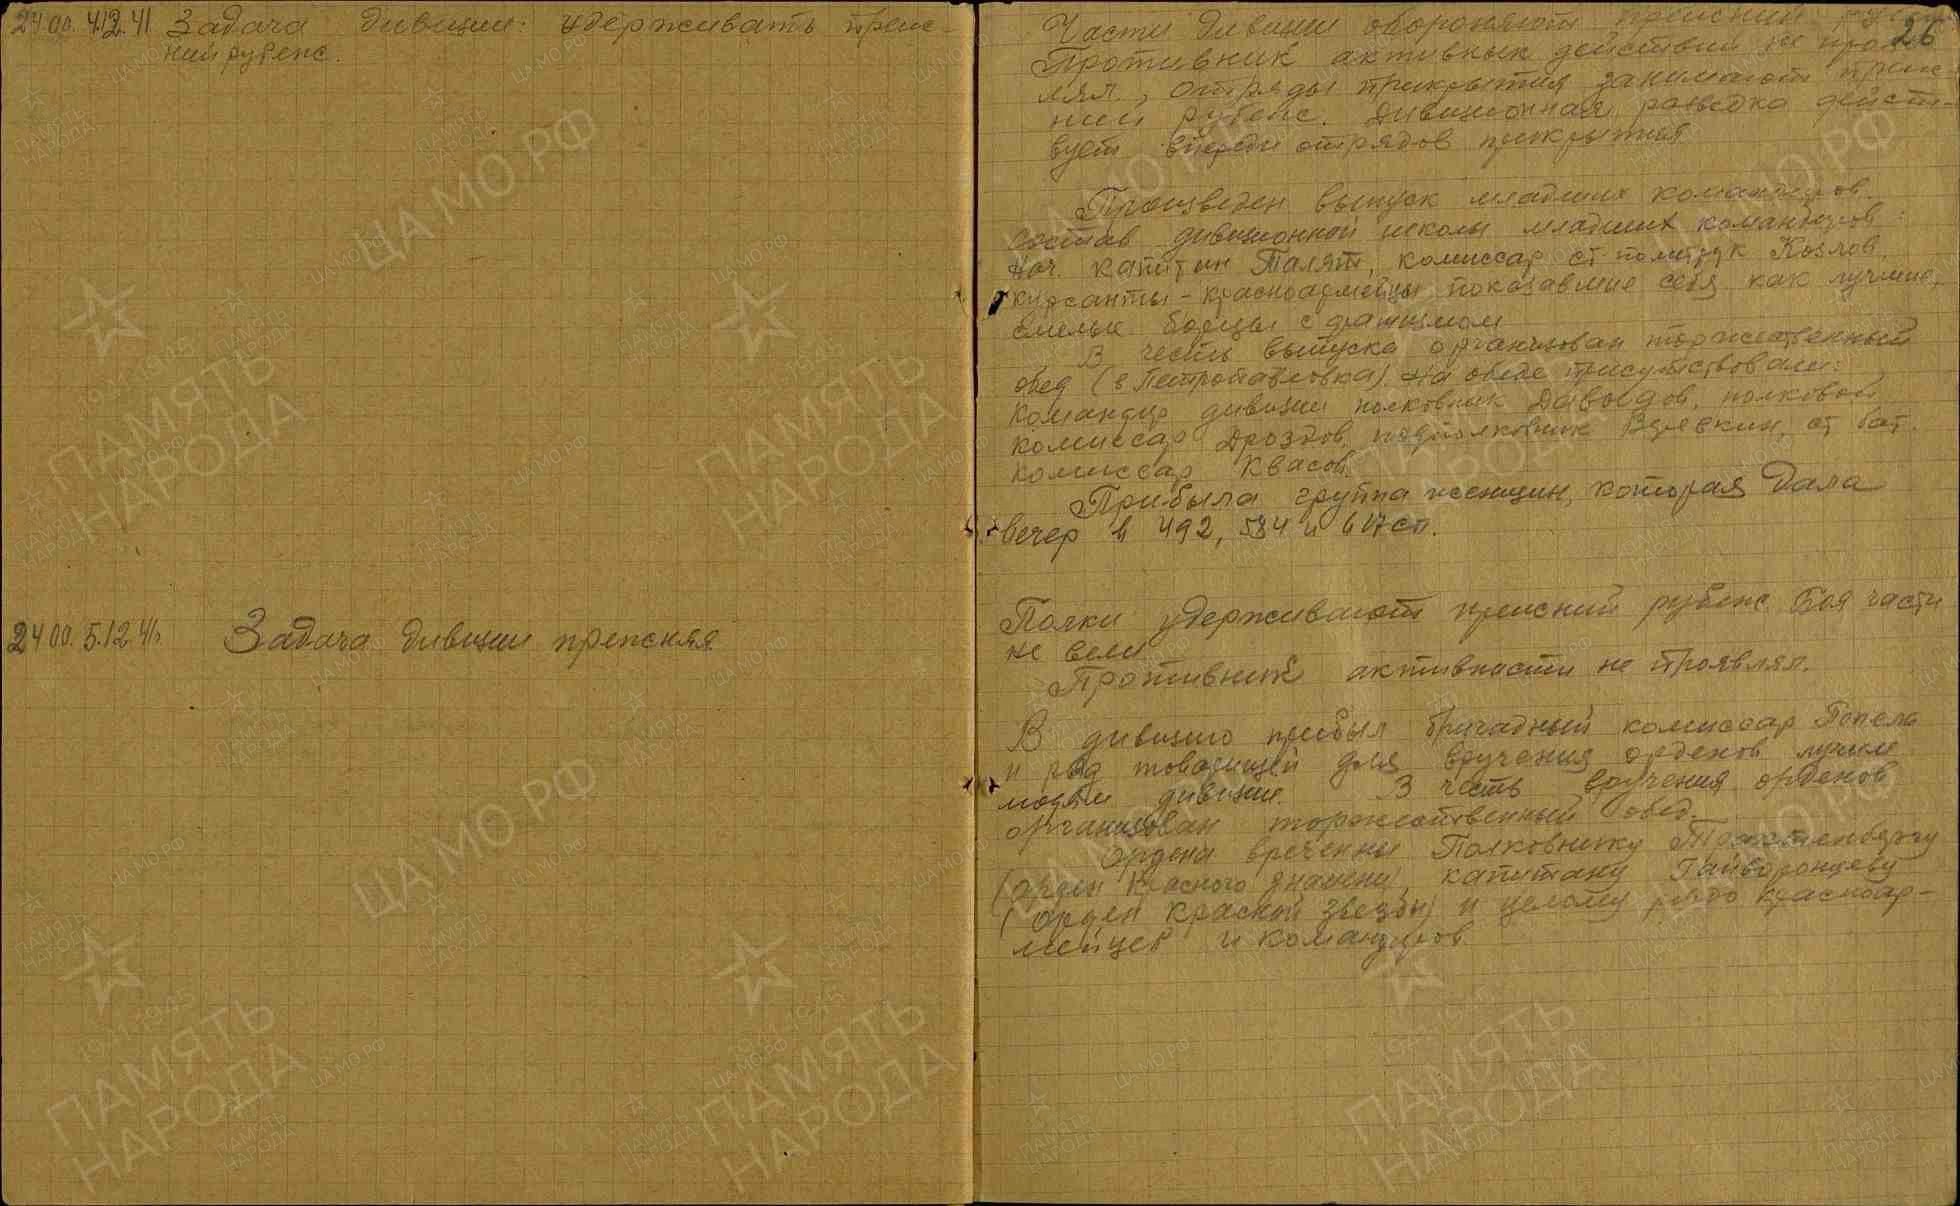 24 00. 4.12.41 Задача дивизии: удерживать преж-
ний рубеж.
24 00. 5.12.41 Задача дивизии прежняя
26
Части дивизии обороняют прежний
Противник активных действий не прояв
лял, отряды прикрытия занимают преж
ний рубеж. Дивизионная разведка дейст-
вует впереди отрядов прикрытия
Произведен выпуск младших командиров.
Состав дивизионной школы младших командиров:
Нач. капитан Талят, комиссар ст. политрук Козлов,
курсанты - красноармейцы, показавшие себя как лучшие,
смелые борцы с фашизмом
В честь выпуска организован торжественный
обед (в Петропавловка). На обеде присутствовали:
Командир дивизии полковник Давыдов, полковой
комиссар Дроздов, подполковник Веревкин, ст. бат.
комиссар Квасов.
Прибыла группа женщин, которая дала
вечер в 492, 534 и 617 сп.
Полки удерживают прежний рубеж. Боя части
не вели
Противник активности не проявлял.
В дивизию прибыл бригадный комиссар Попель
и ряд товарищей для вручения орденов лучшим
людям дивизии. В честь вручения орденов
организован торжественный обед.
Ордена вреченны Полковнику
(орден Красного знамени), капитану Гайворонцеву
(орден Красной звезды) и целому ряду красноар-
мейцев и командиров
ЦА МО РФ
ПАМЯТЬ
НАРОДА
1941-1945